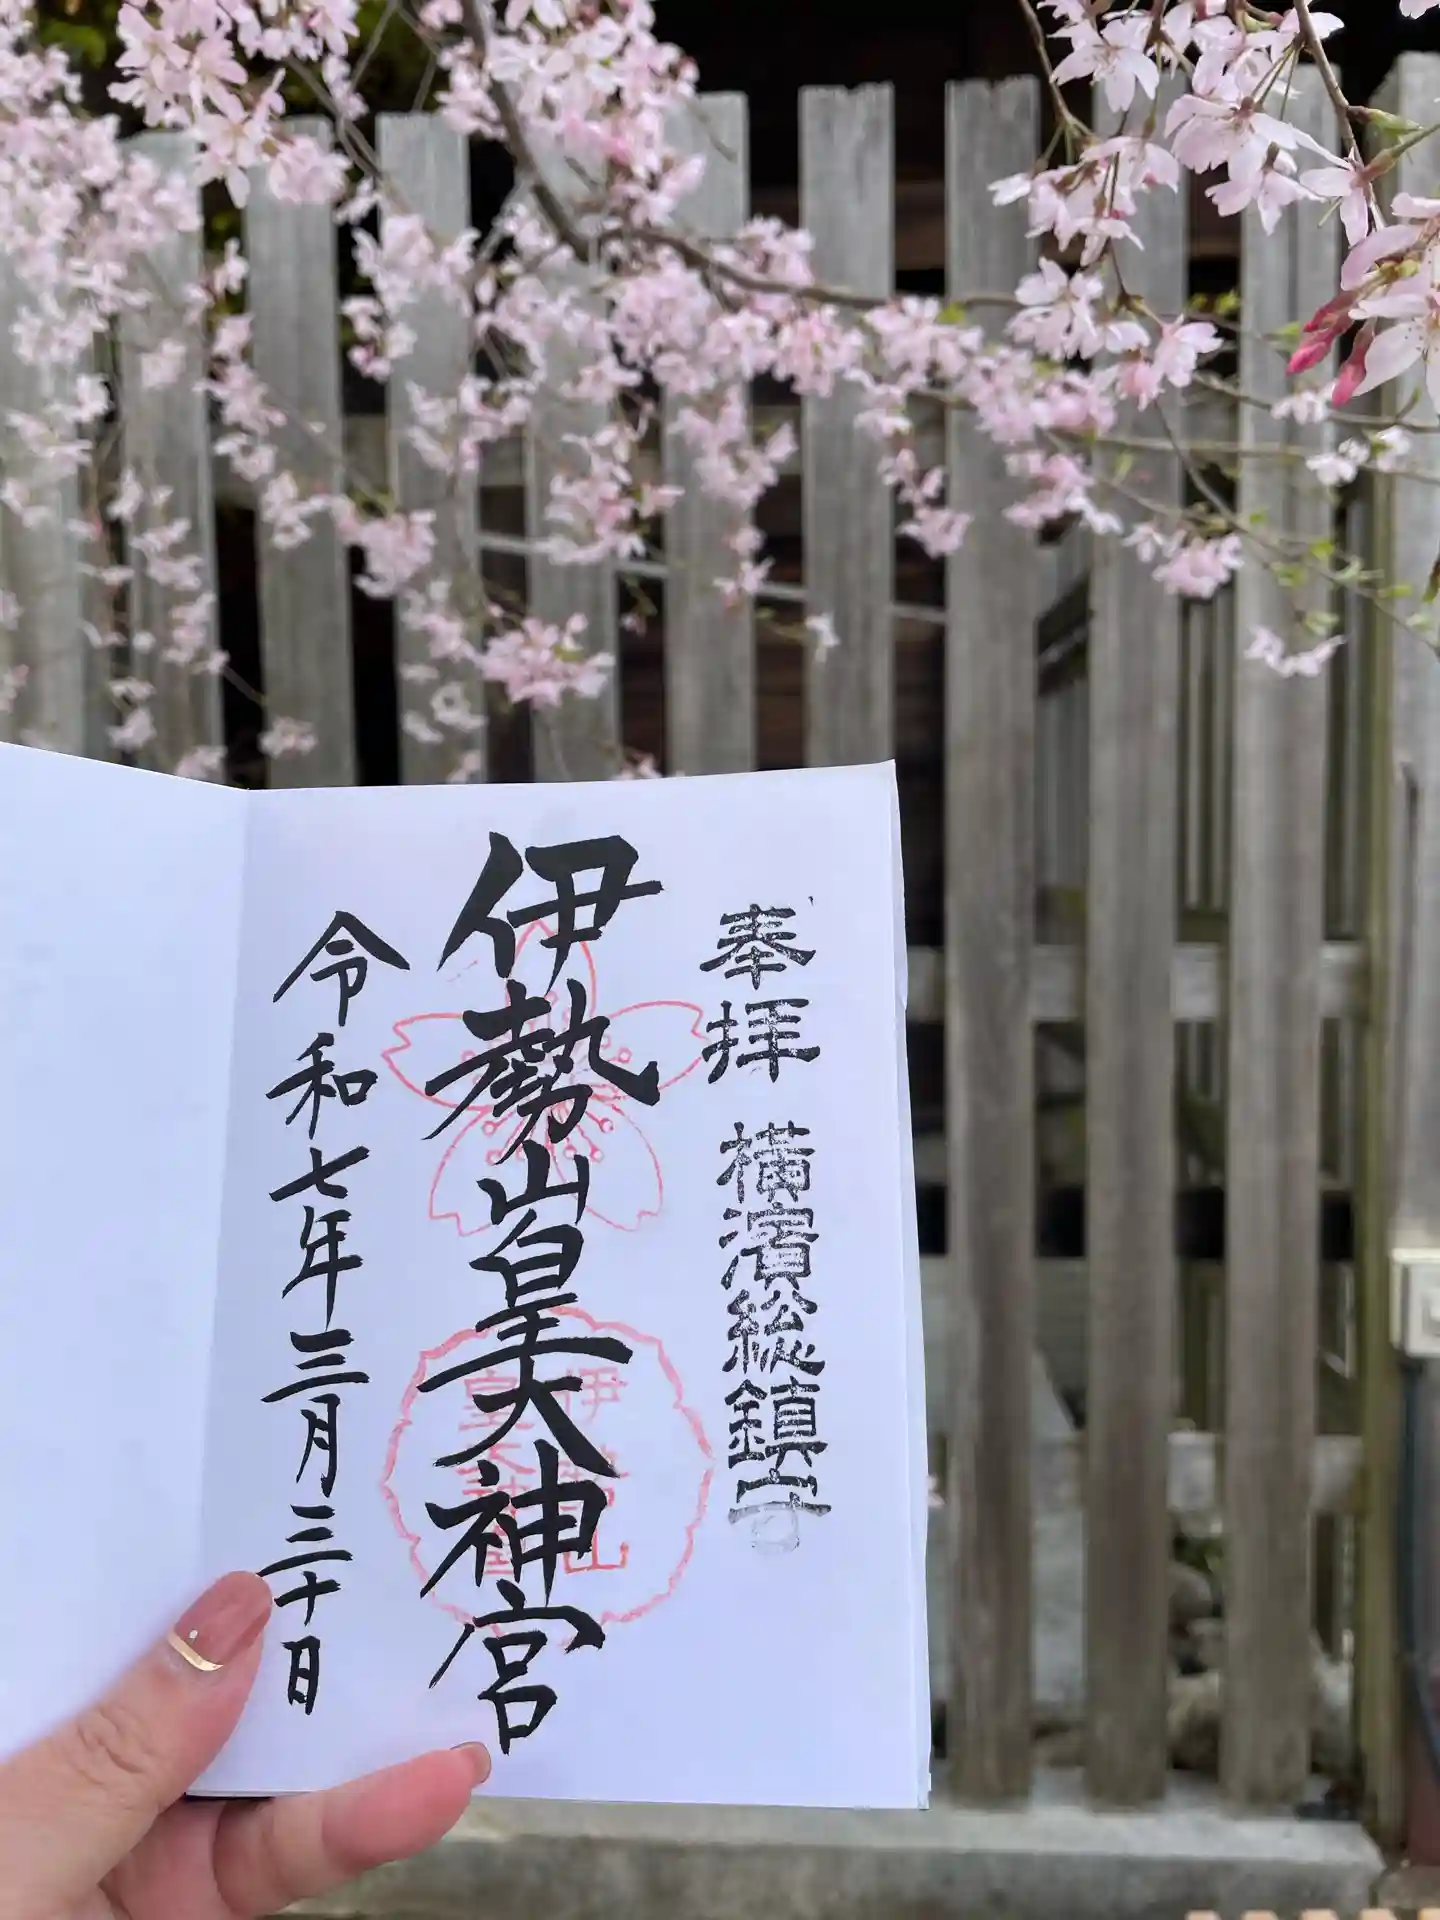 奉拝 横濱総鎮守
伊勢山皇大神宮
令和七年三月三十日
伊勢山
皇大神宮